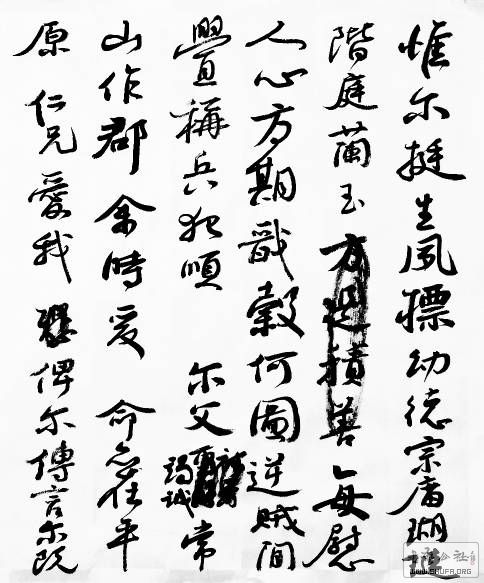 惟尔挺生夙標幼德宗廟瑚璉
階庭蘭玉方憑積善每慰
人心方期戩穀何圖逆賊間
舋稱兵犯順 尔父竭誠常
山作郡余時受 命亦在平
原 仁兄愛我 俾尔傳言尔既
WWW.SHUFA.ORG